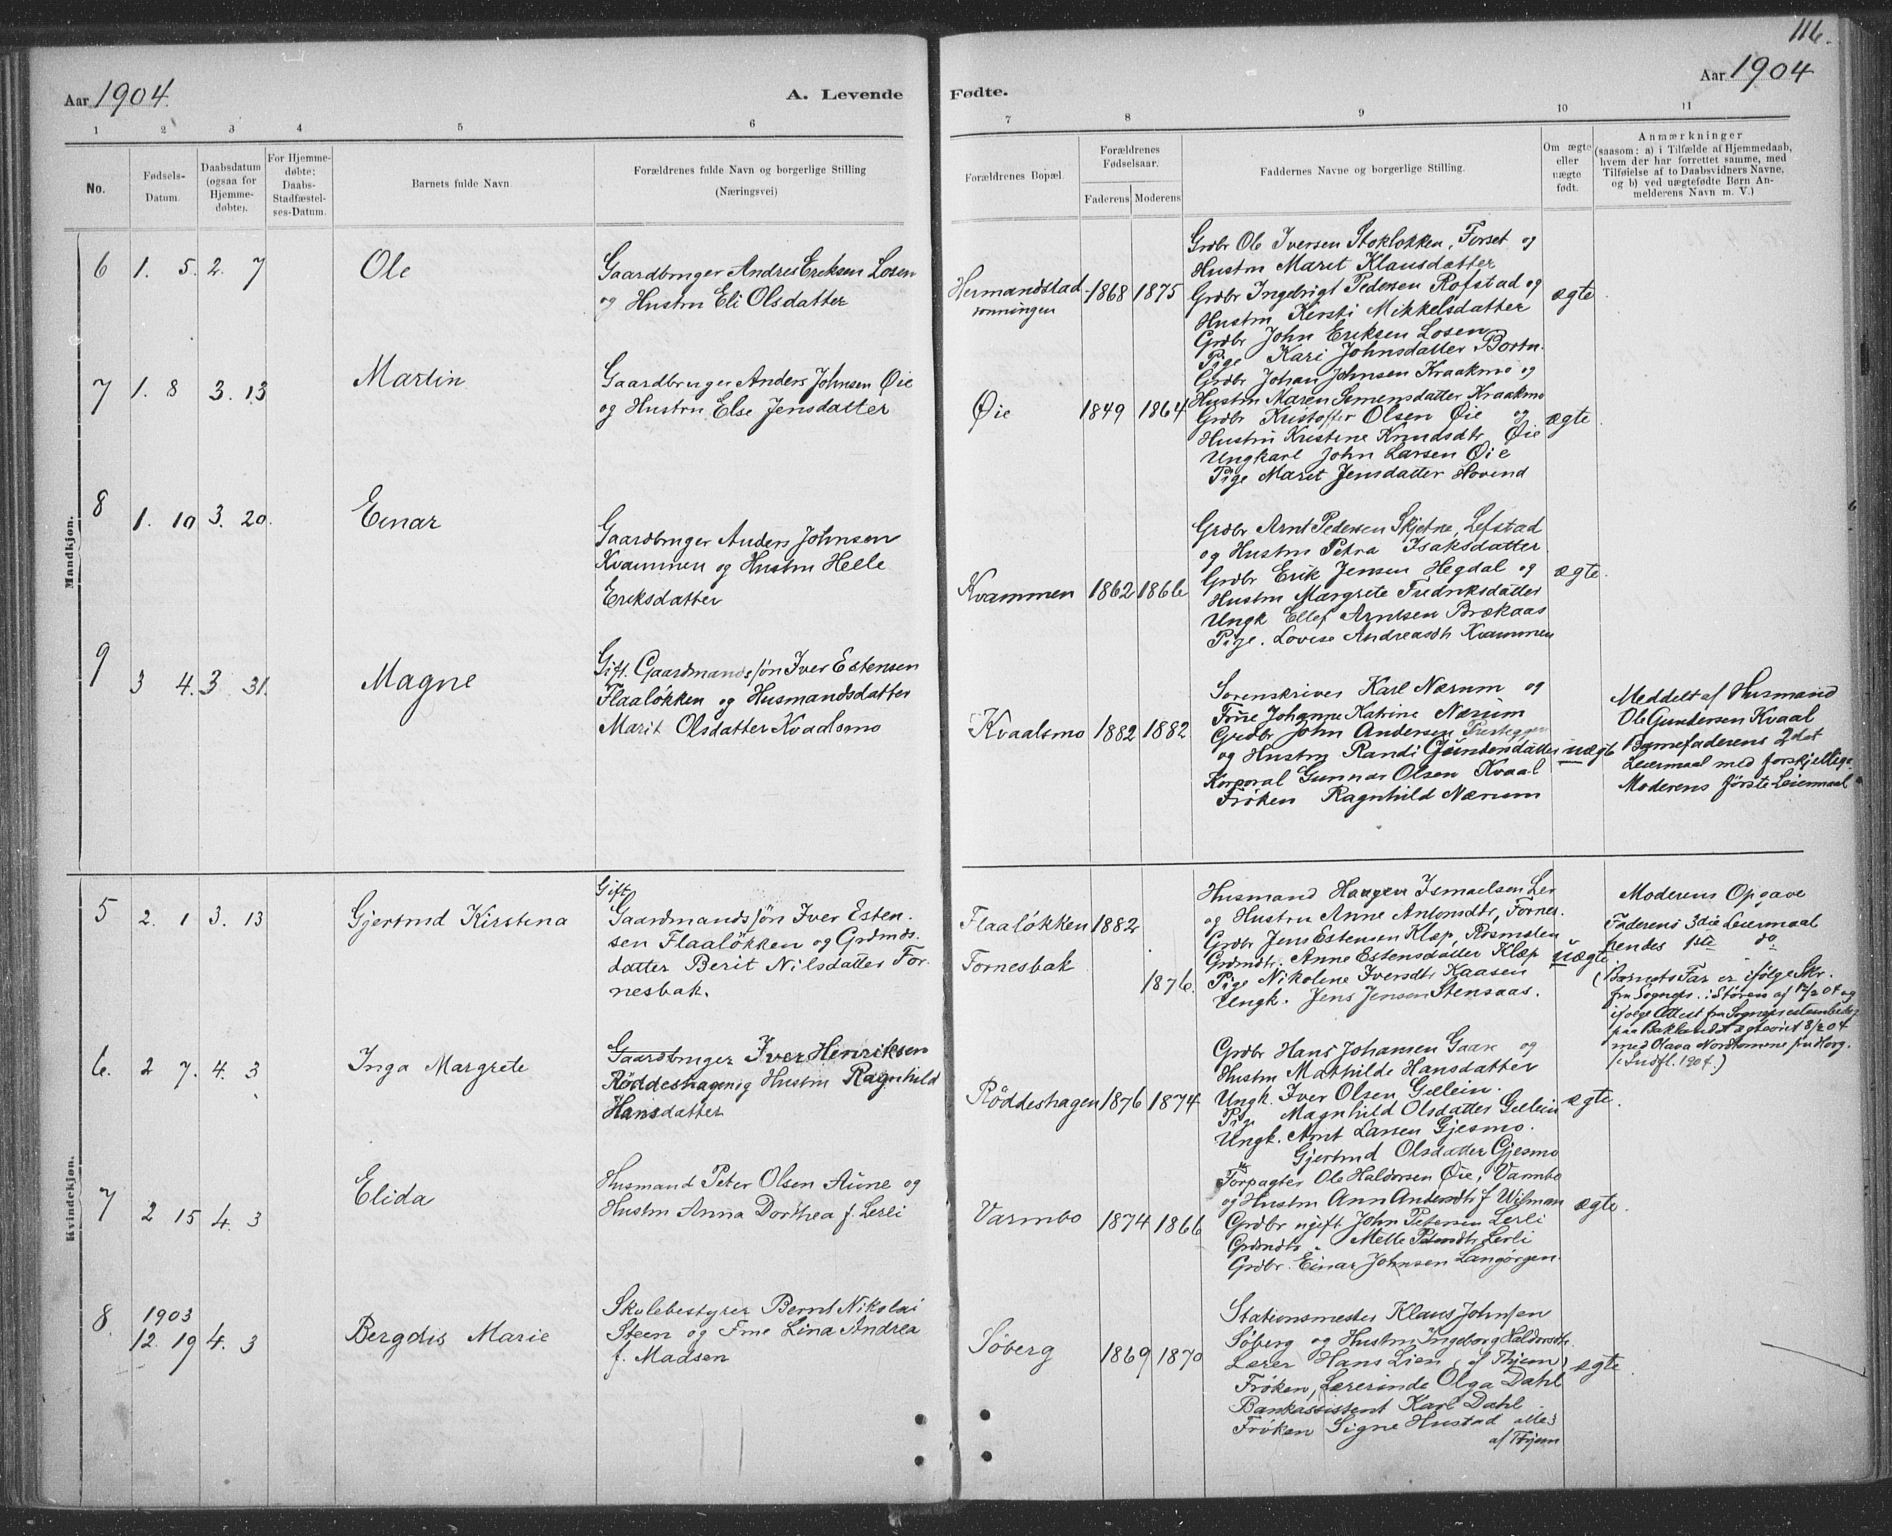 116.
Aar 1904.
A. Levende
Fødte.
Aar 1904
1 2 3 4 5 6 7 8 9 10 11
No.
Fødsels-
Datum.
Daabsdatum
(ogsaa for
Hjemme-
døbte).
For Hjemme-
døbte;
Daabs-
Stadfæstel-
ses-Datum.
Barnets fulde Navn
Forældrenes fulde Navn og borgerlige Stilling
(Næringsvei)
Forældrenes Bopæl.
Forældrenes
Fødselsaar.
Faderens Moderens
Faddernes Navne og borgerlige Stilling.
Om ægte
eller
uægte
født.
Anmærkninger
(saasom: a) i Tilfælde af Hjemmedaab,
hvem der har forrettet samme, med
Tilføielse af to Daabsvidners Navne,
og b) ved uægtefødte Børn An-
melderens Navn m. V.)
Mandkjøn.
6 1. 5. 2. 7 Ole
Gaardbruger Andres Eriksen Losen
og Hustru Eli Olsdatter
Hermandstad
rønningen
1868 1875
Grdbr Ole Iversen Stokløkken, Forset og
Hustru Maret Klausdatter
Grdbr Ingebrigt Pedersen Rofstad og
Hustru Kersti Mikkelsdatter
Grdbr John Eriksen Losen
Pige Kari Johnsdatter Bortn.
ægte
7 1. 8 3. 13 Martin
Gaardbruger Anders Johnsen Øie
og Hustru Else Jensdatter
Øie 1849 1864
Grdbr Johan Johnsen Kraakmo og
Hustru Maren Simensdatter Kraakmo
Grdbr Kristoffer Olsen Øie og
Hustru Kristene Knudsdtr Øie
Ungkarl John Larsen Øie
Pige Maret Jensdatter Hovind
ægte
8 1. 10 3. 20. Einar
Gaardbruger Anders Johnsen
Kvammen og Hustru Helle
Eriksdatter
Kvammen 1862 1866
Grdbr Arnt Pedersen Skjetne, Lefstad
og Hustru Petra Isaksdatter
Grdbr Erik Jensen Hegdal og
Hustru Margrete Fredriksdatter
Ungk Ellef Arntsen Brækaas
Pige. Lovise Andreasdtr Kvammen
ægte.
9 3 4. 3 31. Magne
Gift. Gaardmandssøn Iver Estensen
Flaaløkken og Husmandsdatter
Marit Olsdatter Kvaalsmo
Kvaalsmo 1882 1882
Sorenskriver Karl Nærum og
Frue Johanne Katrine Nærum
Grdbr John Andersen
og Hustru Randi Gundersdatter
Korporal Gunnar Olsen Kvaal
Frøken Ragnhild Nærum
uægte
Meddelt af Husmand
Ole Gundersen Kvaal
Barnefaderens 2det
Leiermaal med forskjellige
Moderens første Leiermaal
Kvindekjøn.
5 2. 1 3. 13 Gjertrud Kirstina
Gift
Gaardmandssøn Iver Esten-
sen Flaaløkken og Grdmds.
datter Berit Nilsdatter For-
nesbak.
Flaaløkken 1882
Fornesbak 1876.
Husmand Haagen Ismaelsen Ler
og Hustru Anne Antonsdtr, Fornes.
Grdbr Jens Estensen Klæp, Rosmælen
Grdmdtr. Anne Estensdatter Klæp
Pige Nikolene Iversdtr Kaasen
Ungk. Jens Jensen Stensaas.
uægte
Moderens Opgave
Faderens 3die Leiermaal
hendes 1ste do
(Barnets Far er ifølge Skr.
fra Sogneps. i Støren af 12/2 04 og
ifølge Attest fra Sogneprestembedet
paa Baklandet ægteviet 8/2 04
med Olava Nordtømme fra Horg.
(cfr Indfl. 1904.)
6. 2 7. 4. 3 Inga Margrete
Gaardbruger Iver Henriksen
Røddeshagen og Hustru Ragnhild
Hansdatter
Røddeshagen 1876 1874
Grdbr Hans Johansen Gaare og
Hustru Mathilde Hansdatter
Ungk. Iver Olsen Gellein.
Pige Magnhild Olsdatter Gellein
Ungk. Arnt Larsen Gjesmo.
Gjertrud Olsdatter Gjesmo
ægte.
7 2 15 4. 3 Elida
Husmand Peter Olsen Aune og
Hustru Anna Dorthea f. Lerli
Varmbo 1874 1866
Forpagter Ole Haldorsen Øie, Varmbo
og Hustru Ann Andersdtr f Wilman
Grdbr ugift John Petersen Lerli
Grdmdtr Mette Petersdtr Lerli
Grdbr. Einar Johnsen Langørgen.
ægte.
8. 1903
12. 19 4. 3 Bergdis Marie
Skolebestyrer Bernt Nikolai
Steen og Frue Lina Andrea
f. Madsen
Søberg 1869 1870
Stationsmester Klaus Johnsen
Søberg og Hustru Ingeborg Haldorsdtr.
Lærer Hans Lien, af Thjem
Frøken, Lærerinde Olga Dahl
Bankassistent Karl Dahl
Frøken Signe Hustad alle
af Thjem
ægte